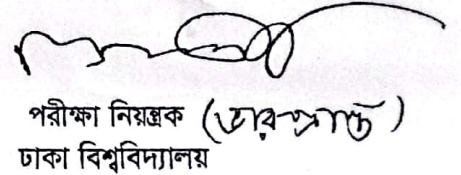 পরীক্ষা নিয়ন্ত্রক (ভারপ্রাপ্ত)
ঢাকা বিশ্ববিদ্যালয়